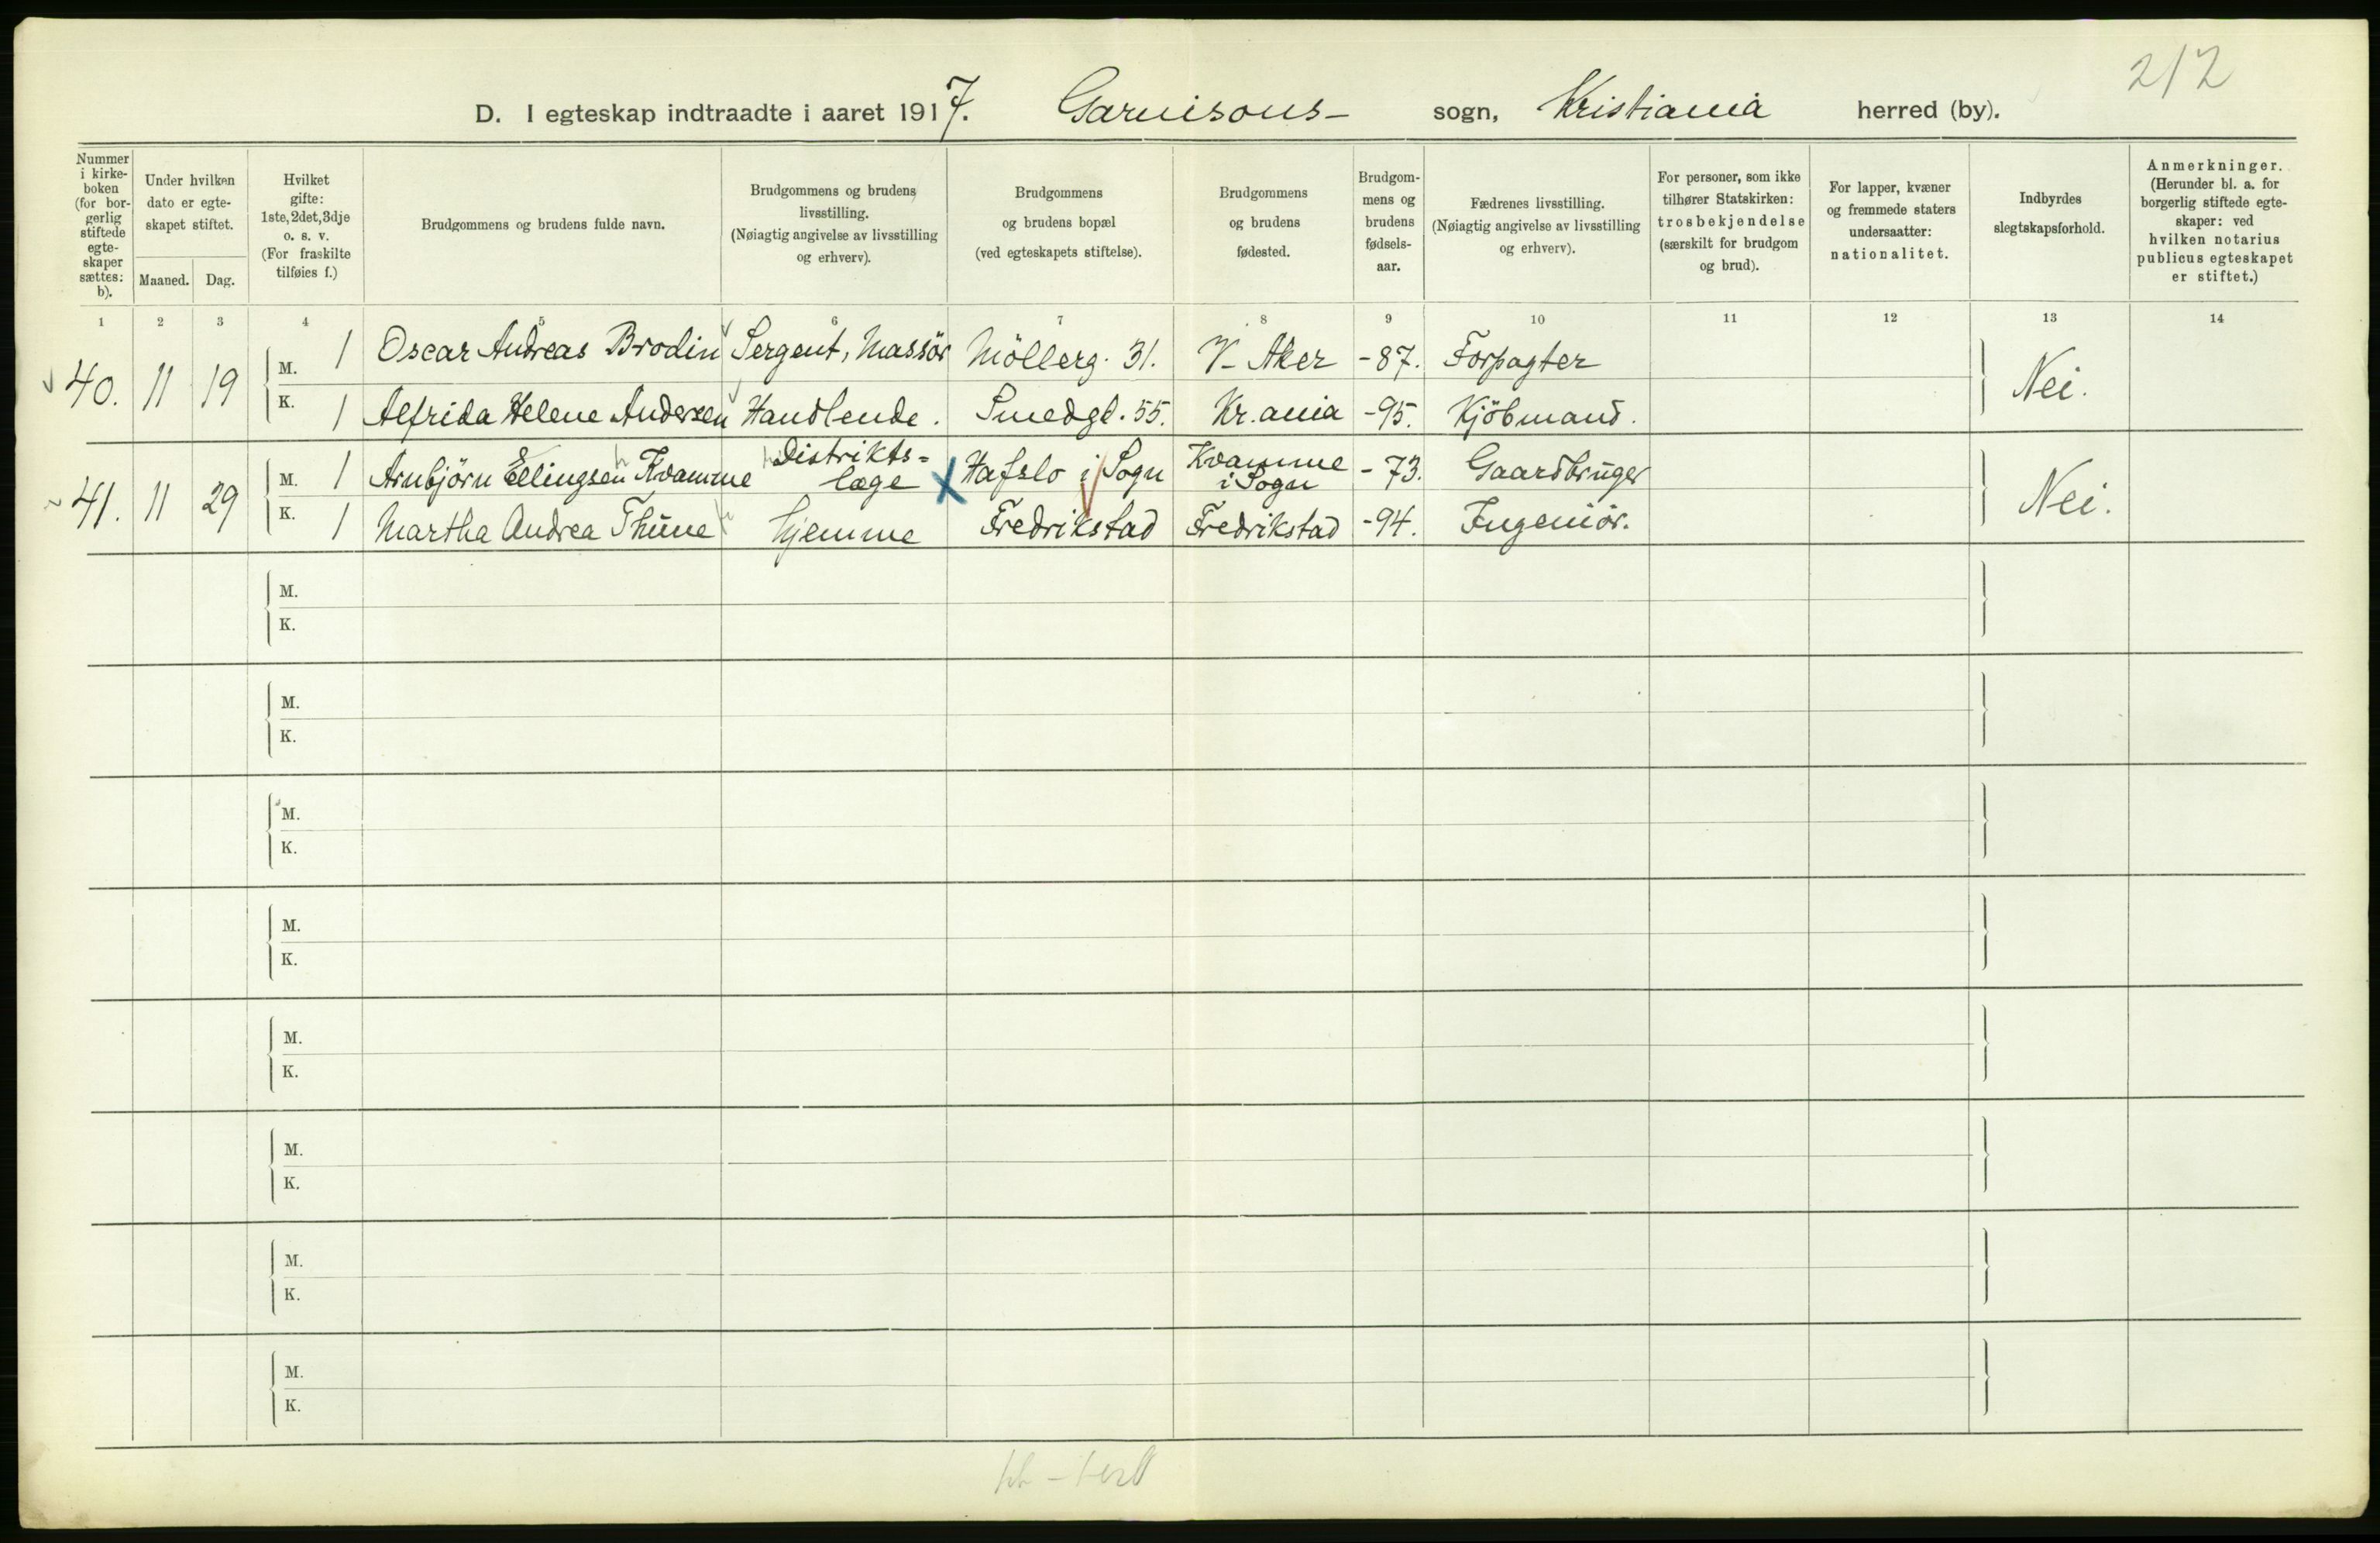 212
D. I egteskap indtraadte i aaret 1917. Garnisons- sogn, Kristiania herred (by).
Nummer i kirke-boken (for bor-gerlig stiftede egte-skaper sættes: b).
Under hvilken dato er egte-skapet stiftet.
Maaned. Dag.
Hvilket gifte: 1ste, 2det, 3dje o. s. v. (For fraskilte tilføies f.)
Brudgommens og brudens fulde navn.
Brudgommens og brudens livsstilling. (Nøiagtig angivelse av livsstilling og erhverv).
Brudgommens og brudens bopæl (ved egteskapets stiftelse).
Brudgommens og brudens fødested.
Brudgom-mens og brudens fødsels-aar.
Fædrenes livsstilling. (Nøiagtig angivelse av livsstilling og erhverv).
For personer, som ikke tilhører Statskirken: trosbekjendelse (særskilt for brudgom og brud).
For lapper, kvæner og fremmede staters undersaatter: nationalitet.
Indbyrdes slegtskapsforhold.
Anmerkninger. (Herunder bl. a. for borgerlig stiftede egte-skaper: ved hvilken notarius publicus egteskapet er stiftet.)
1 2 3 4 5 6 7 8 9 10 11 12 13 14
40. 11 19 M. 1 Oscar Andreas Brodin Sergent, Massör Möllerg. 31. V. Aker -87. Forpagter Nei.
K. 1 Alfrida Helene Andersen Handlende. Smedgt. 55. Kr.ania -95. Kjöbmand.
41. 11 29 M. 1 Arnbjörn Ellingsen Kvamme Distrikts=læge Hafslo i Sogn Kvamme i Sogn -73. Gaardbruger Nei.
K. 1 Martha Andrea Thüne hjemme Fredrikstad Fredrikstad -94. Ingeniör.
M.
K.
M.
K.
M.
K.
M.
K.
M.
K.
M.
K.
M.
K.
M.
K.